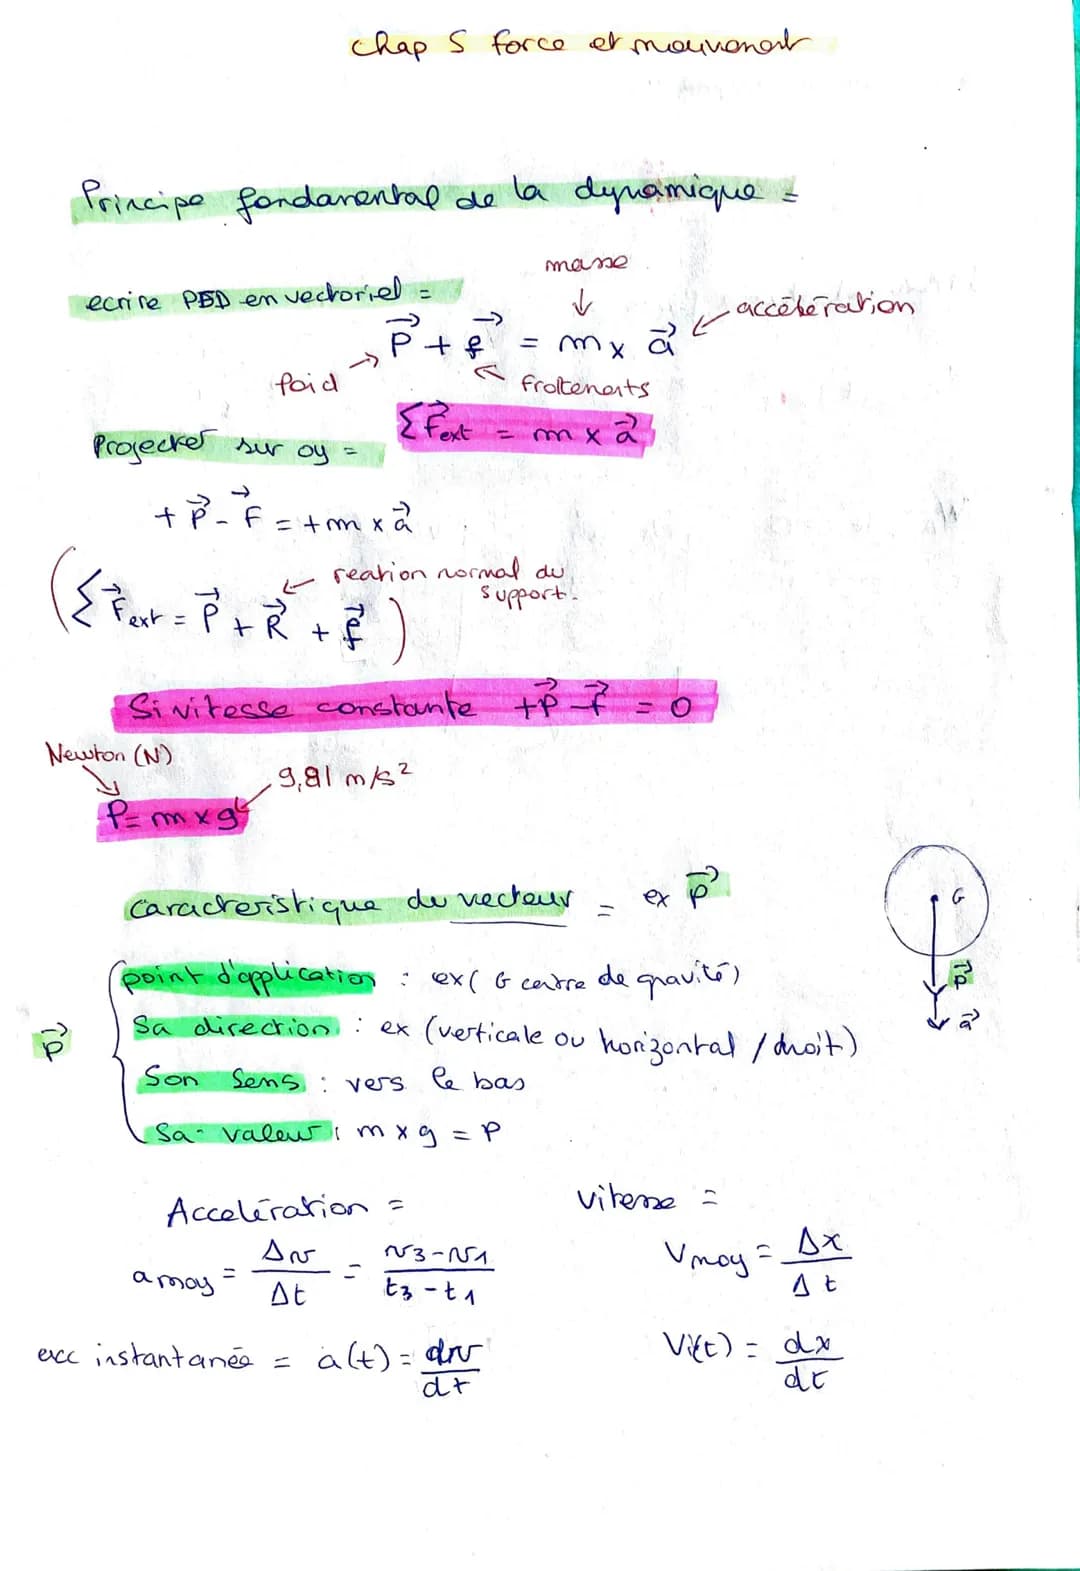 Chap 5 force et mouvement
Principe fondamental de la dynamique =
masse
ecrire PFD en vectoriel =
↓
accélération
P⃗ + f⃗ = m x a⃗
poid
frottements
Σ F⃗ext = m x a⃗
Projecter sur oy =
+ P⃗ - F⃗ = + m x a⃗
reation normal du
support.
(Σ F⃗ext = P⃗ + R⃗ + f⃗)
Si vitesse constante +P⃗ - f⃗ = 0
Newton (N)
9,81 m/s²
P = m x g
caracteristique du vecteur = ex P⃗
G
point d'application : ex ( G centre de gravité)
P⃗
a⃗
Sa direction : ex (verticale ou horizontal / droit)
P⃗
Son Sens : vers le bas
Sa valeur : m x g = P
Acceleration =
vitesse =
a moy = Δv/Δt = v3-v1/t3-t1
Vmoy = Δx/Δt
acc instantanée = a(t) = dv/dt
Vi(t) = dx/dt